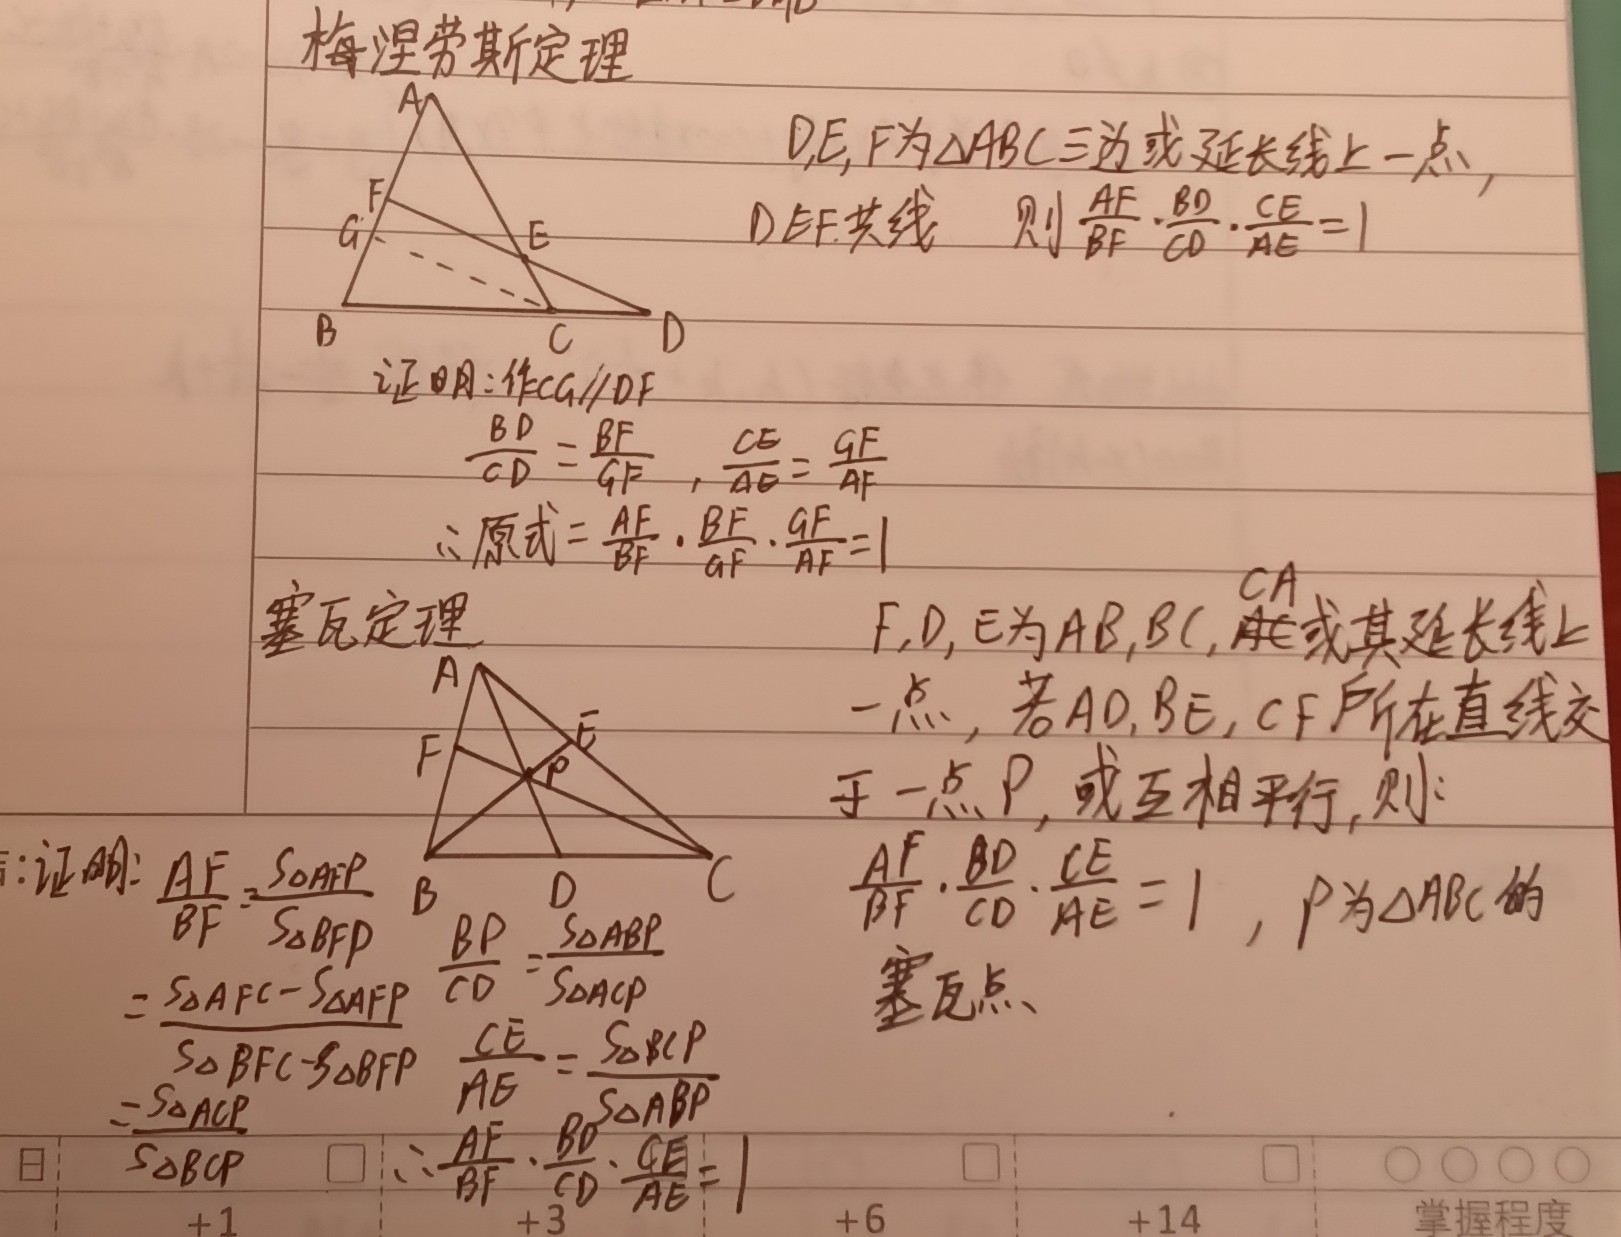 梅涅劳斯定理
A
F
G
E
B
C
D
D,E,F为△ABC三边或延长线上一点,
DEF共线 则 AF/BF · BD/CD · CE/AE = 1
证明:作CG//DF
BD/CD = BF/GF , CE/AE = GF/AF
∴原式 = AF/BF · BF/GF · GF/AF = 1
塞瓦定理
A
F
E
P
B
D
C
CA
F,D,E为AB,BC,AC或其延长线上
一点,若AD,BE,CF所在直线交
于一点P,或互相平行,则:
AF/BF · BD/CD · CE/AE = 1 , P为△ABC的
塞瓦点
:证明: AF/BF = S△AFP/S△BFP
= S△AFC-S△AFP/S△BFC-S△BFP
= S△ACP/S△BCP
BD/CD = S△ABP/S△ACP
CE/AE = S△BCP/S△ABP
∴ AF/BF · BD/CD · CE/AE = 1
日
+1 +3 +6 +14 掌握程度